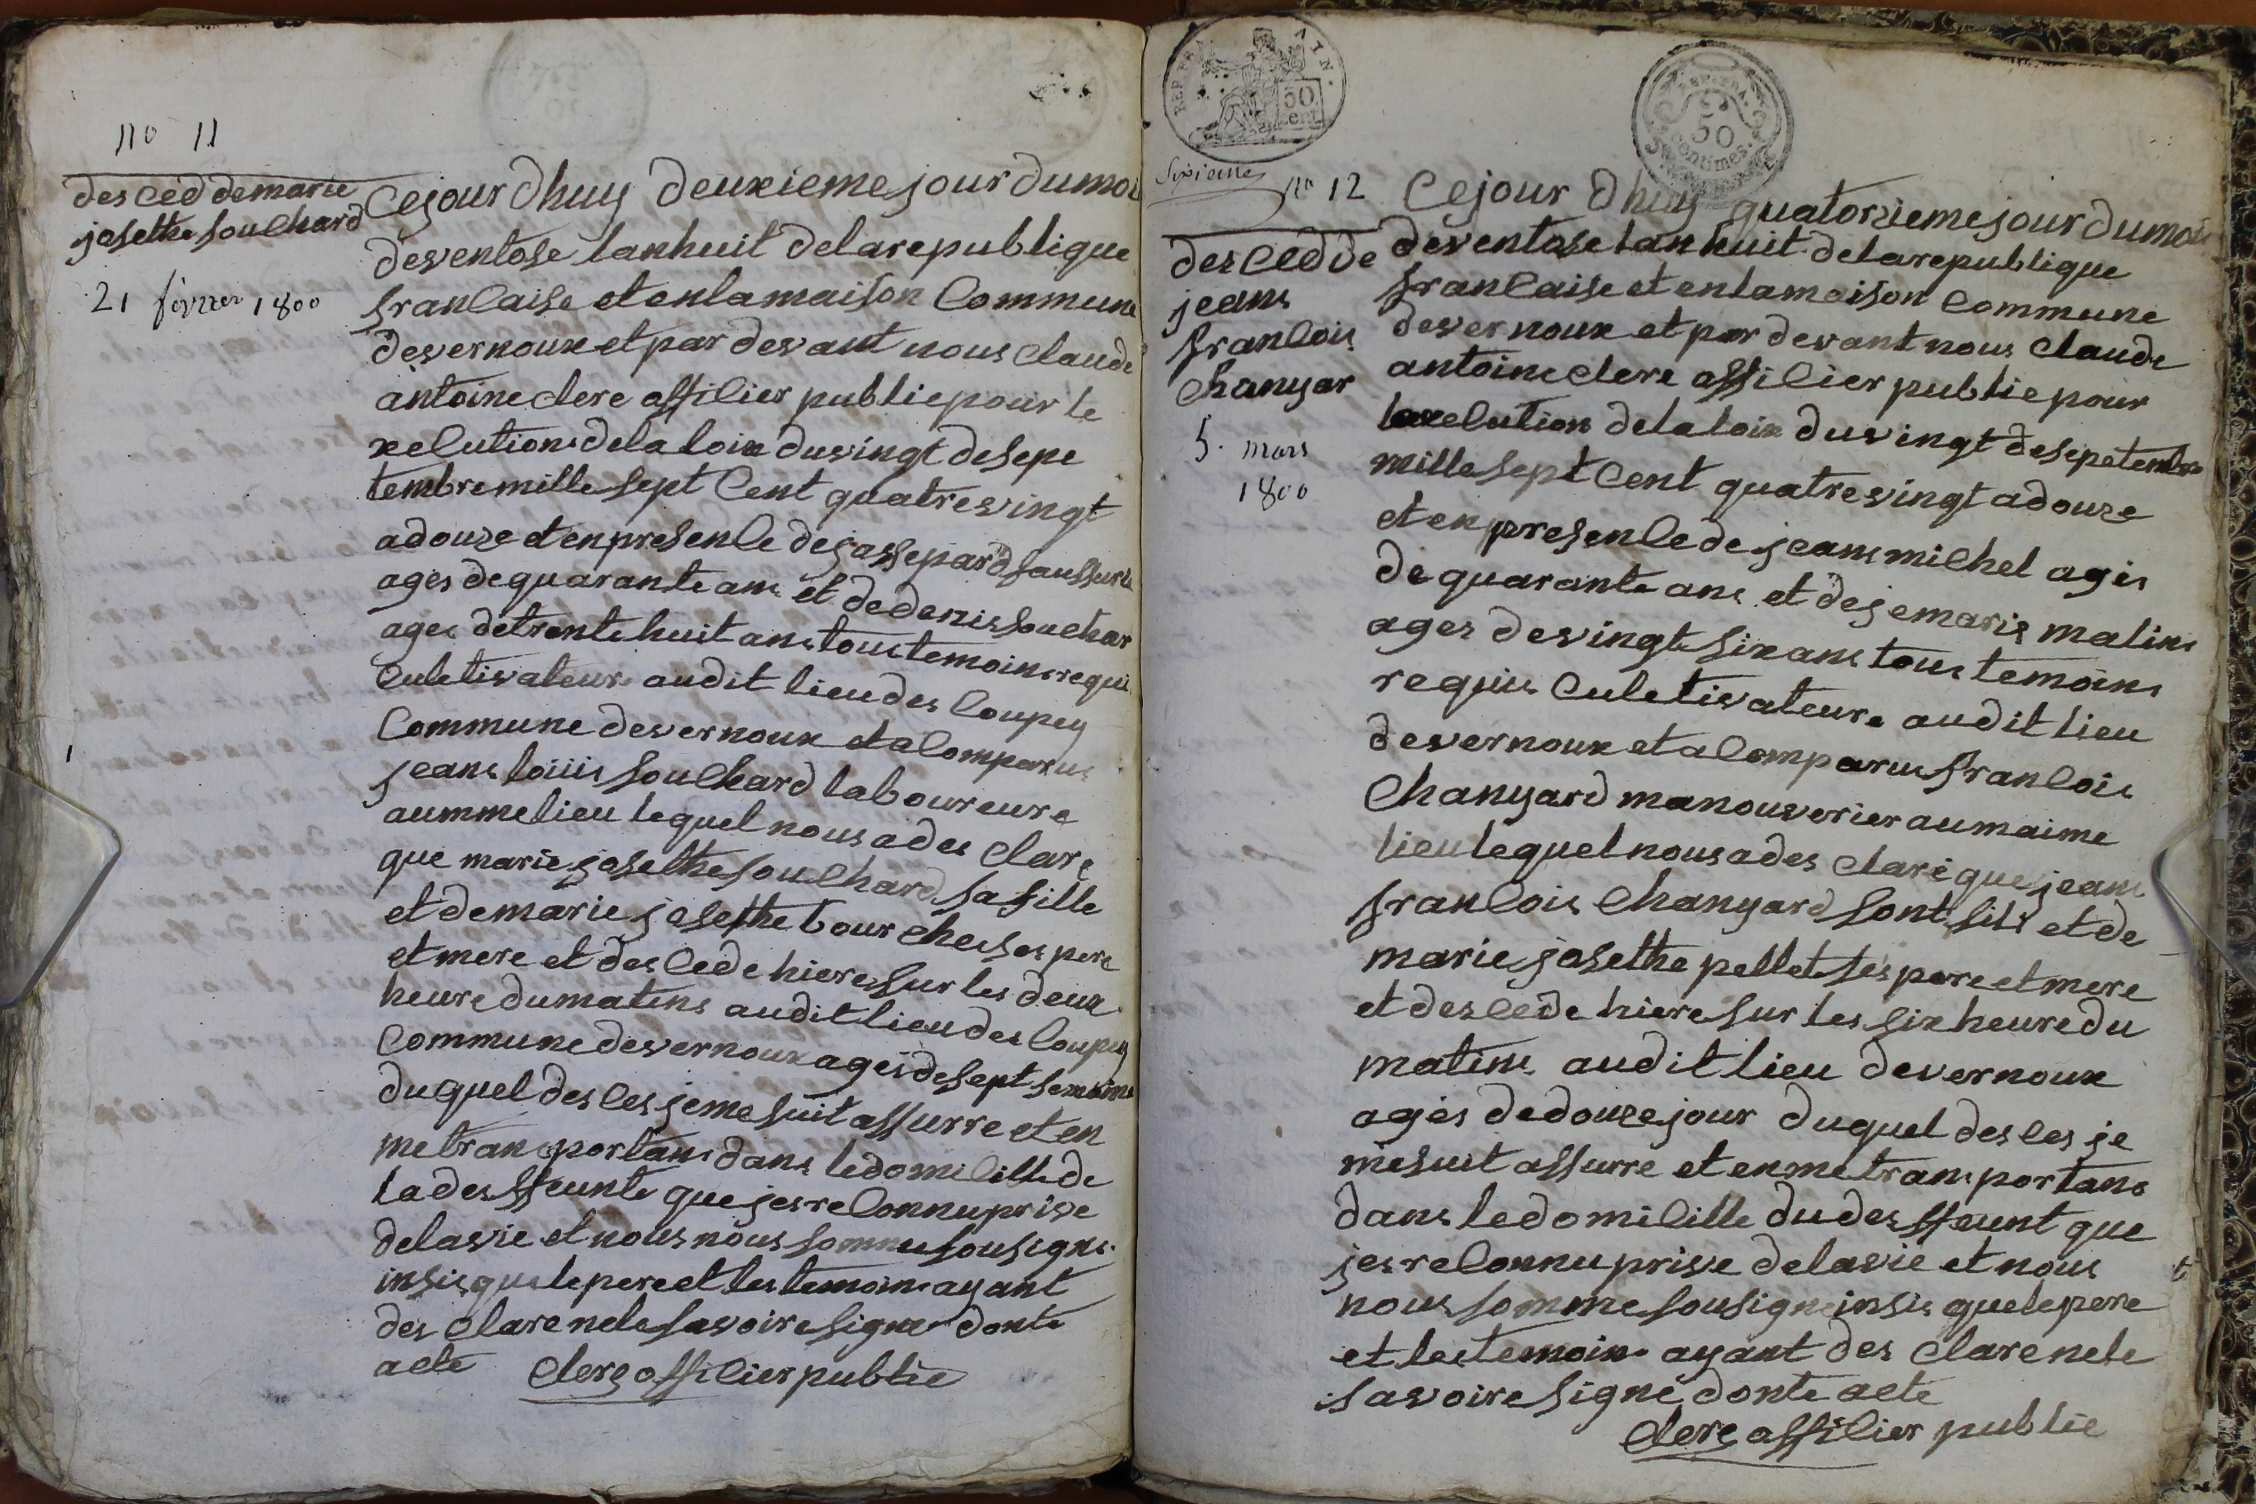 no 11
des Céd demarie
josethe souChard
21 février 1800
Cejour Dhuy deuxieme jour dumoi
desventose lanhuit delarepublique
franCaise et enlamaison Commune
desvernoux et par desvant nous claude
antoine clerc offiCier publie pour le
xeCution dela loix dusvingt desepe
tembre mille sept Cent quatresvingt
adouze et enpresenCe dejassepard saussure
agés dequarante ans et dedenis souchar
ages detrente huit ans tous temoins requi
Culetivateurs audit lieu des Coupey
Commune desvernoux et a Comparus
jeans loiiis souChard laboureure
aummelieu lequel nous a des clare
que marie josethe souChard sa fille
et demarie josethe bourcheises pere
et mere et des Cede hiere sur les deux
heure dumatens audit lieu des Coupey
Commune desvernoux agés desept semaine
duquel des ces jeme suit assurre et en
metransportans dans ledomiCille de
la desffeunte que jesreConnu prisve
delasvie et nous nous somme sousigne
insis que le pere et les temoins ayant
des clare nele savoire signe donte
acte clerc offiCier publie
Sixieme
no 12
des Ced de
jeans
franCois
Chanyar
5. mars
1800
REP. FRA
50
cent
REP. FRA.
50
centimes.
Cejour Dhuy quatorzieme jour dumoi
desventose lan huit delarepublique
franCaise et en lamaison Commune
desvernoux et par devant nous claude
antoine clerc offiCier publie pour
lexeCution delaloix dusvingt desepetembre
mille sept Cent quatresvingt adouze
et en presenCe de jeans miChel agés
de quarante ans et dejemaris matins
ages desvingt six ans tous temoins
requis Culetivateure audit lieu
desvernoux et a Comparus franCois
Chanyard manousverier aumaime
lieu lequel nous a des claré que jeans
franCois Chanyard sont fils et de
marie josethe pellet ses pere et mere
et des cede hiere sur les six heure du
matins audit lieu devernoux
agés dedouze jour duquel des ces je
mesuit assurre et enmetransportans
dans ledomiCille du desffeunt que
jesreConnu prisve delasvie et nous
nous somme sousigne insis que le pere
et les temoins ayant des clare nele
savoire signé donte acte
clerc offiCier publie